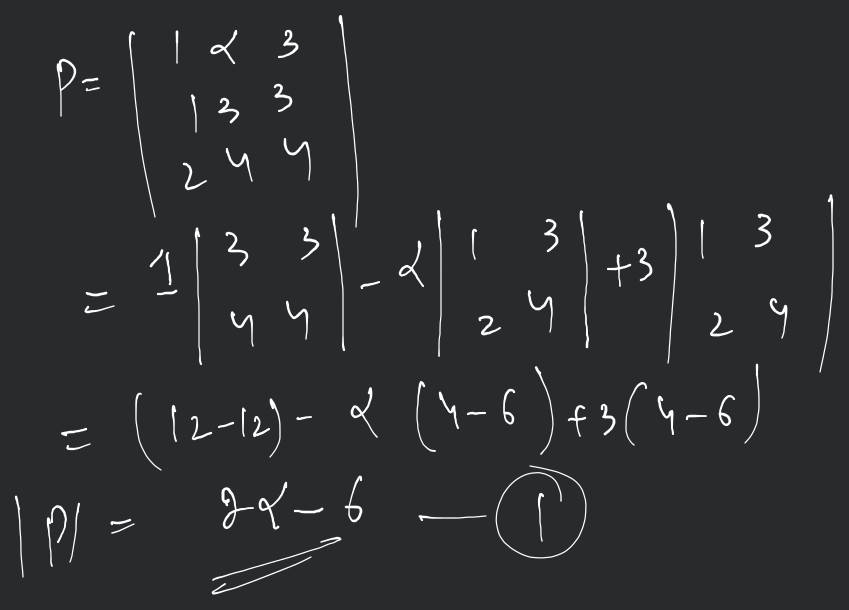 P= | 1 α 3 |
| 1 3 3 |
| 2 4 4 |
= 1 | 3 3 | - α | 1 3 | +3 | 1 3 |
| 4 4 | | 2 4 | | 2 4 |
= (12-12) - α (4-6) +3(4-6)
|P| = 2α - 6 — ①